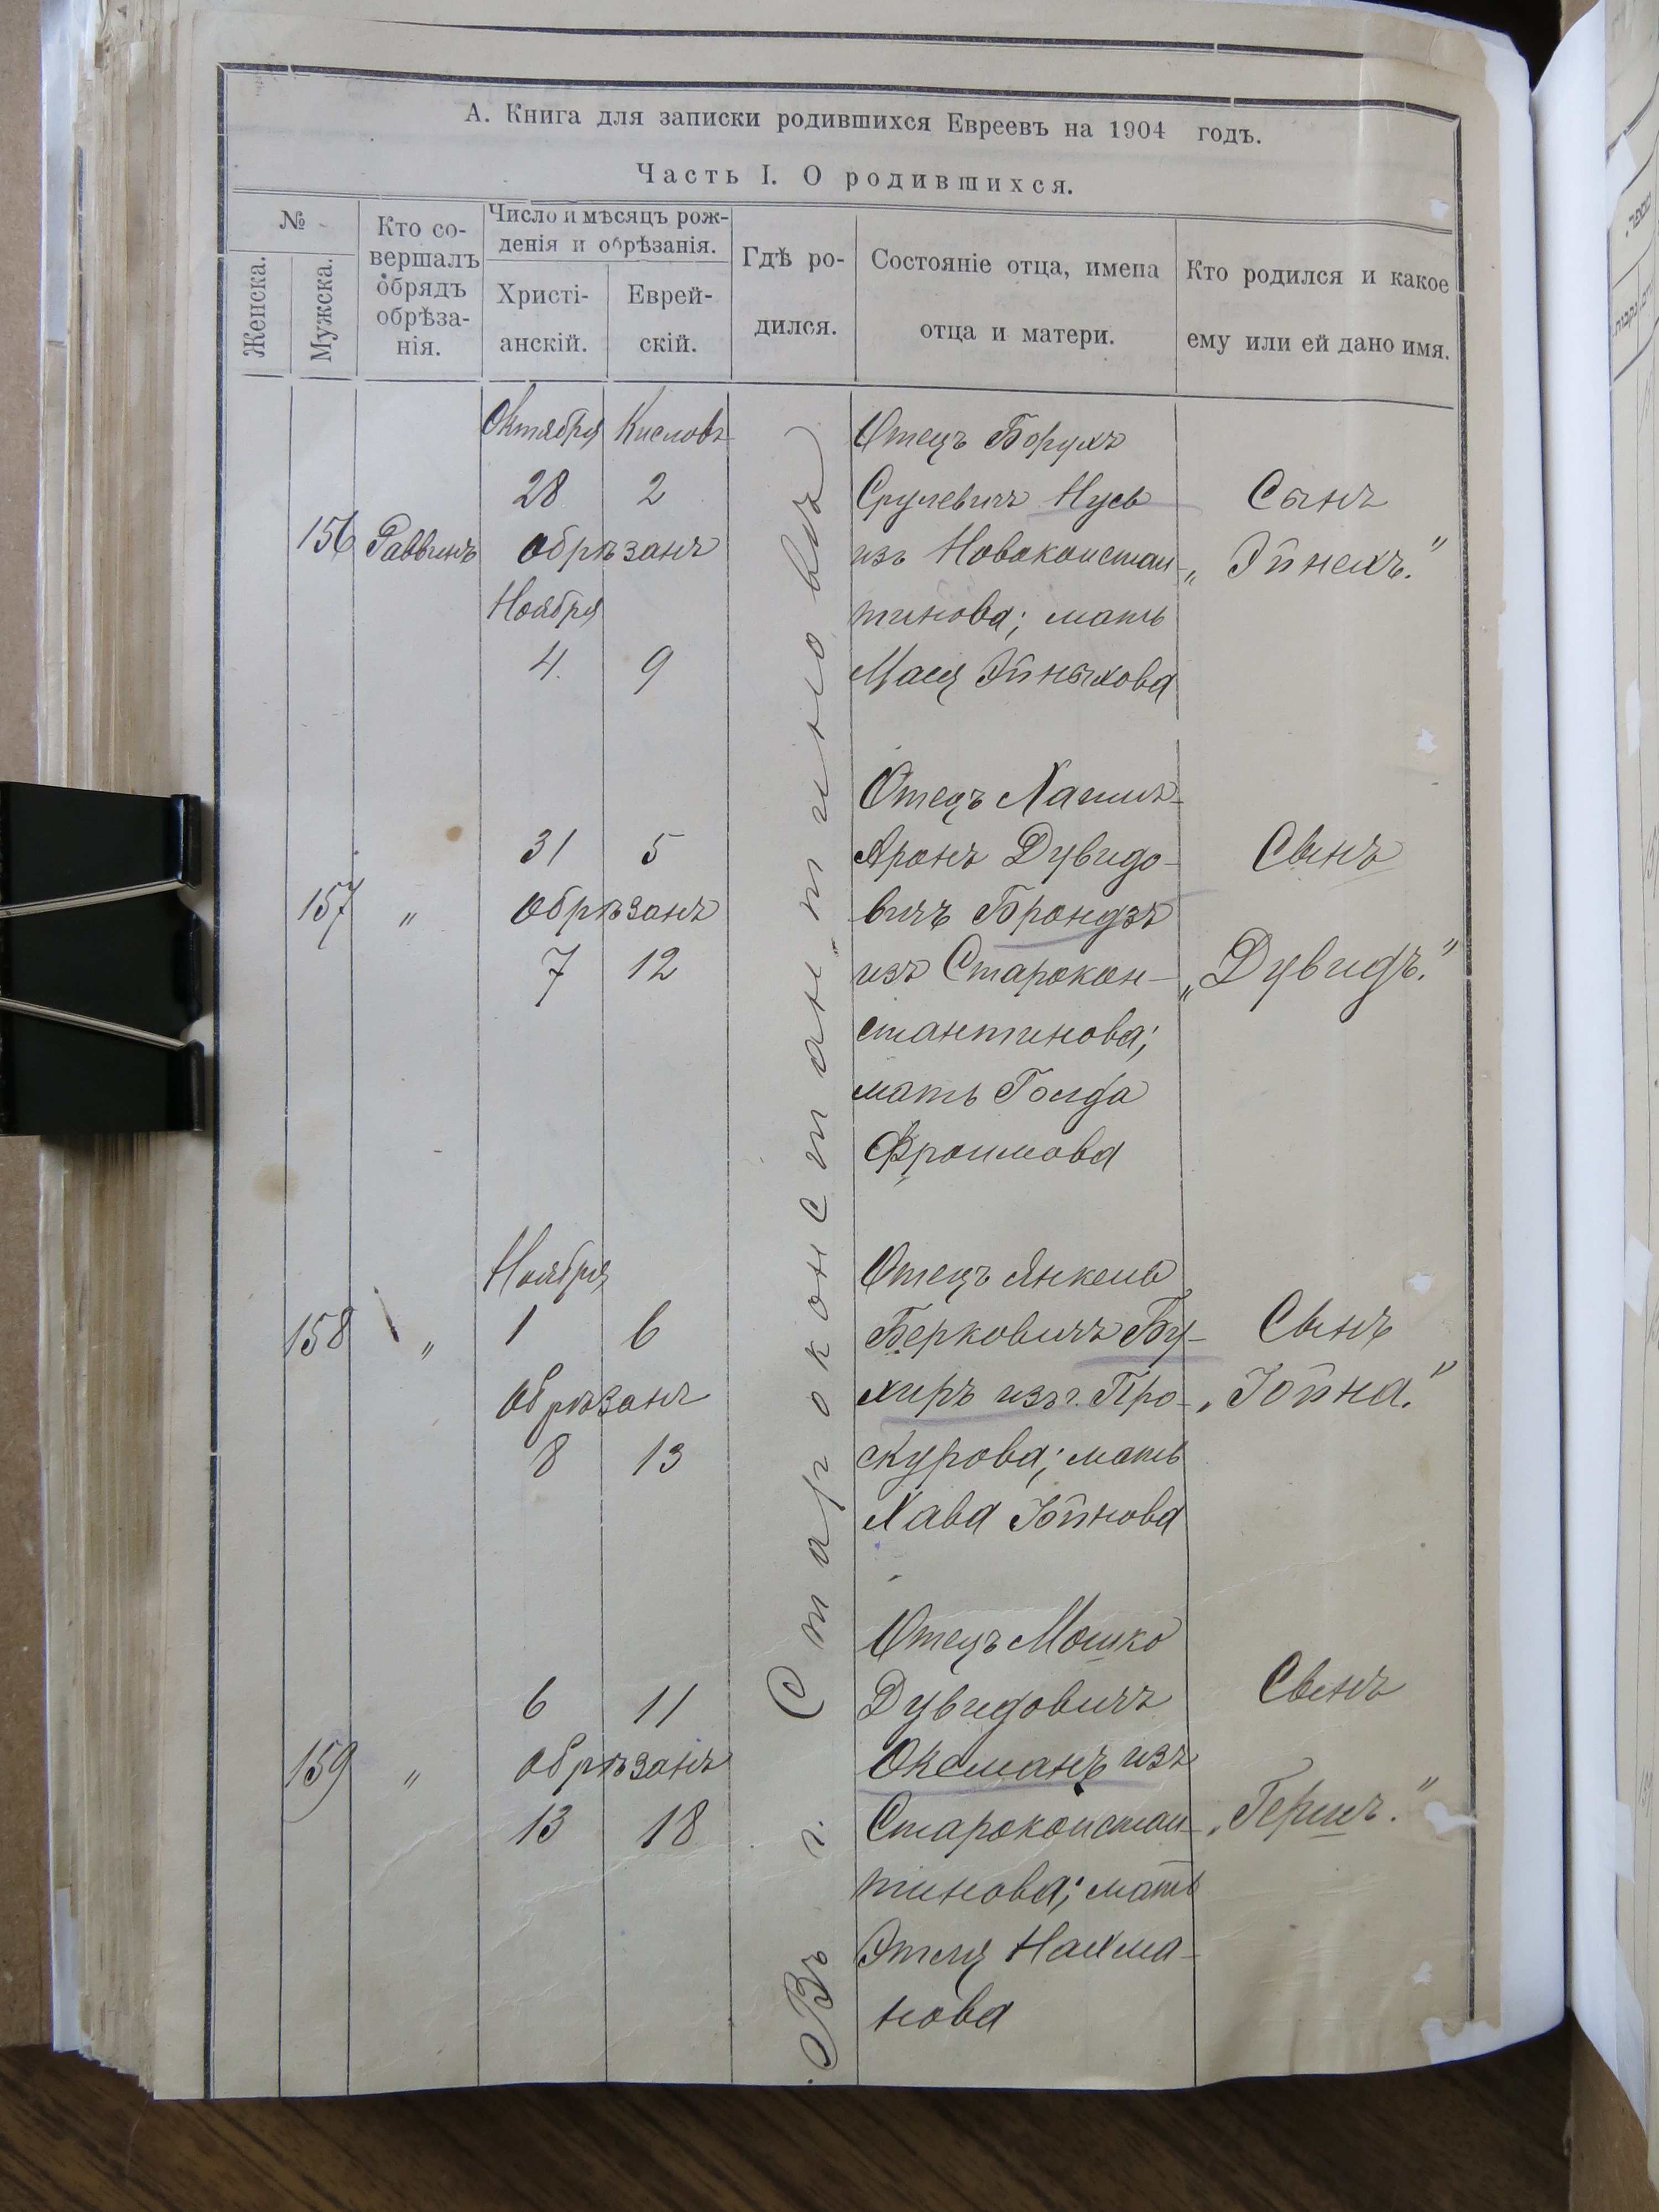 А. Книга для записки родившихся Евреевъ на 1904 годъ.
Часть I. О родившихся.
№
Женска.
Мужска.
Кто со-
вершалъ
обрядъ
обрѣза-
нія.
Число и мѣсяцъ рож-
денія и обрѣзанія.
Христі-
анскій.
Еврей-
скій.
Гдѣ ро-
дился.
Состояніе отца, имена
отца и матери.
Кто родился и какое
ему или ей дано имя.
Въ г. Староконстантиновѣ
Октября Кисловъ
28 2
156 Раввинъ обрѣзанъ
Ноября
4 9
Отецъ Борухъ
Срулевичъ Нусь
изъ Новоконстан-
тинова; мать
Мася Эйныхова
Сынъ
„Эйнехъ.“
31 5
157 „ обрѣзанъ
7 12
Отецъ Хаимъ-
Аронъ Дувидо-
вичъ Брондзъ
изъ Старокон-
стантинова;
мать Голда
Фроимова
Сынъ
„Дувидъ.“
Ноября
158 „ 1 6
обрѣзанъ
8 13
Отецъ Янкель
Берковичъ Бу-
хиръ изъ г. Про-
скурова; мать
Хава Іойнова
Сынъ
„Іойна.“
6 11
159 „ обрѣзанъ
13 18
Отецъ Мошко
Дувидовичъ
Оксманъ изъ
Староконстан-
тинова; мать
Этля Нахма-
нова
Сынъ
„Гершъ.“